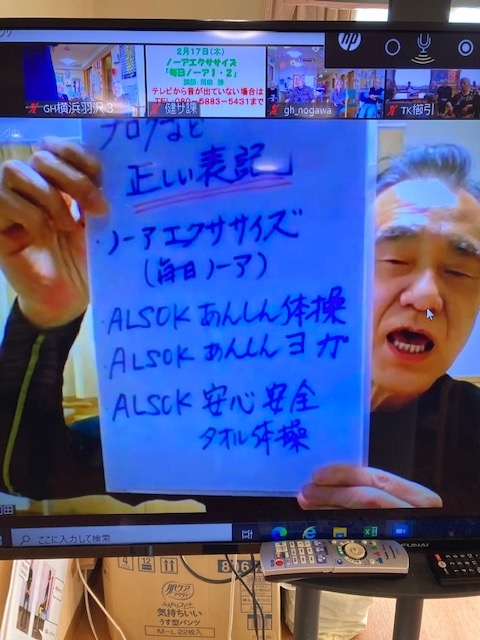 hp
2月17日(水)
ノーアエクササイズ
「毎日ノーア1・2」
テレビから音が出ていない場合は
5883-5431まで
GH横浜羽沢3
健サ課
gh_nogawa
TK御引
ブログなど
正しい表記」
・ノーアエクササイズ
(毎日ノーア)
・ALSOK あんしん体操
・ALSOK あんしんヨガ
・ALSOK 安心安全
タオル体操
ここに入力して検索
FUNAI
肌ケア
アクティ
気持ちいい
うす型パンツ
M-L 22枚入